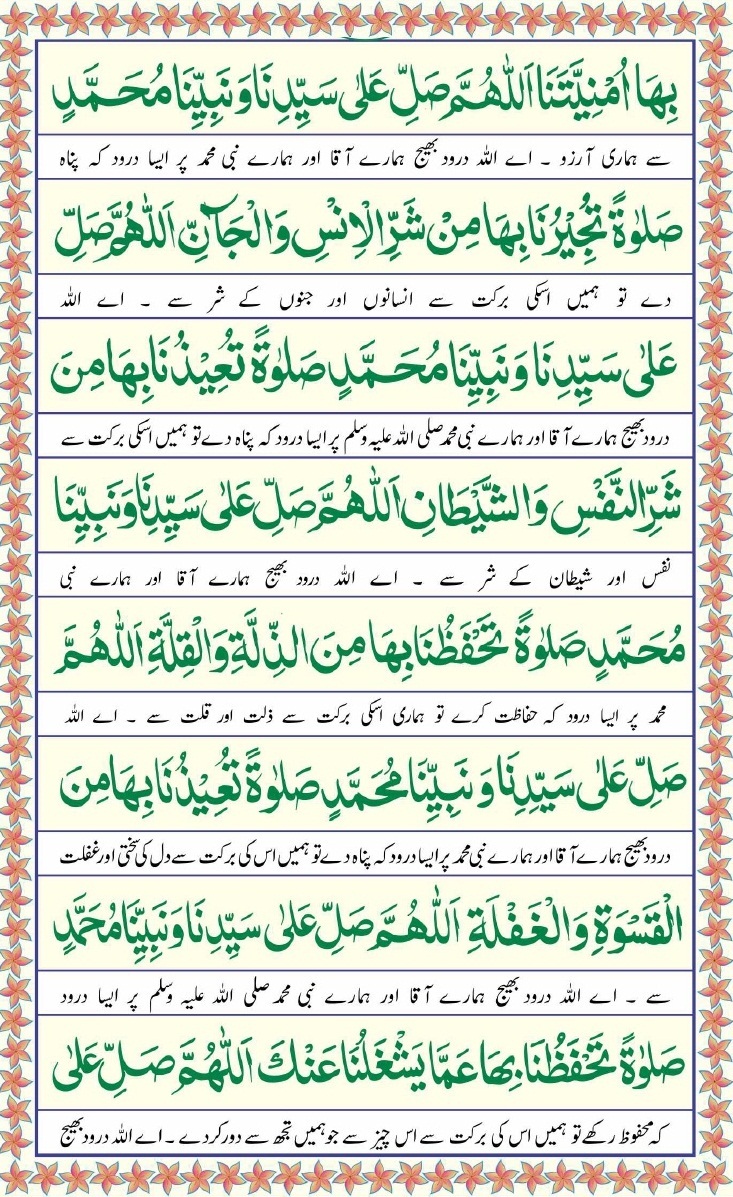 بِهَا اُمْنِيَّتَنَا اَللّٰهُمَّ صَلِّ عَلٰى سَيِّدِنَا وَنَبِيِّنَا مُحَمَّدٍ
سے ہماری آرزو ۔ اے اللہ درود بھیج ہمارے آقا اور ہمارے نبی محمد پر ایسا درود کہ پناہ
صَلٰوةً تُجِيْرُنَا بِهَا مِنْ شَرِّ الْاِنْسِ وَالْجَآنِّ اَللّٰهُمَّ صَلِّ
دے تو ہمیں اسکی برکت سے انسانوں اور جنوں کے شر سے ۔ اے اللہ
عَلٰى سَيِّدِنَا وَنَبِيِّنَا مُحَمَّدٍ صَلٰوةً تُعِيْذُنَا بِهَا مِنَ
درود بھیج ہمارے آقا اور ہمارے نبی محمد صلی اللہ علیہ وسلم پر ایسا درود کہ پناہ دے تو ہمیں اسکی برکت سے
شَرِّ النَّفْسِ وَالشَّيْطَانِ اَللّٰهُمَّ صَلِّ عَلٰى سَيِّدِنَا وَنَبِيِّنَا
نفس اور شیطان کے شر سے ۔ اے اللہ درود بھیج ہمارے آقا اور ہمارے نبی
مُحَمَّدٍ صَلٰوةً تَحْفَظُنَا بِهَا مِنَ الذِّلَّةِ وَالْقِلَّةِ اَللّٰهُمَّ
محمد پر ایسا درود کہ حفاظت کرے تو ہماری اسکی برکت سے ذلت اور قلت سے ۔ اے اللہ
صَلِّ عَلٰى سَيِّدِنَا وَنَبِيِّنَا مُحَمَّدٍ صَلٰوةً تُعِيْذُنَا بِهَا مِنَ
درود بھیج ہمارے آقا اور ہمارے نبی محمد پر ایسا درود کہ پناہ دے تو ہمیں اس کی برکت سے دل کی سختی اور غفلت
الْقَسْوَةِ وَالْغَفْلَةِ اَللّٰهُمَّ صَلِّ عَلٰى سَيِّدِنَا وَنَبِيِّنَا مُحَمَّدٍ
سے ۔ اے اللہ درود بھیج ہمارے آقا اور ہمارے نبی محمد صلی اللہ علیہ وسلم پر ایسا درود
صَلٰوةً تَحْفَظُنَا بِهَا عَمَّا يَشْغَلُنَا عَنْكَ اَللّٰهُمَّ صَلِّ عَلٰى
کہ محفوظ رکھے تو ہمیں اس کی برکت سے اس چیز سے جو ہمیں تجھ سے دور کردے ۔ اے اللہ درود بھیج